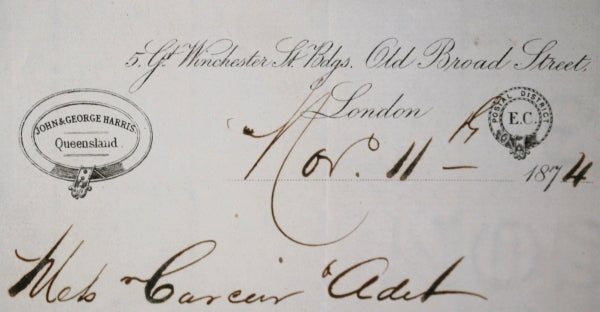 5, Gt. Winchester St. Bdgs. Old Broad Street,
London
JOHN & GEORGE HARRIS,
Queensland.
POSTAL DISTRICT
E.C.
Nov. 11th 1874
Adet